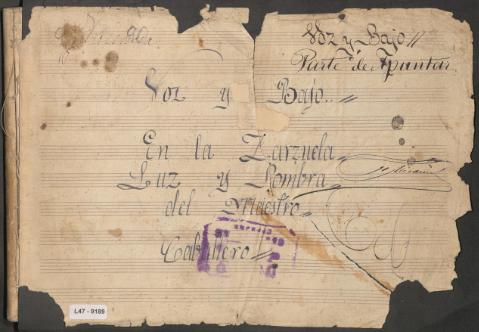 Voz y Bajo //
Parte de Apuntar
Voz y Bajo. //
En la Zarzuela
Luz y Sombra
del Maestro
Caballero //
L47 - 9189